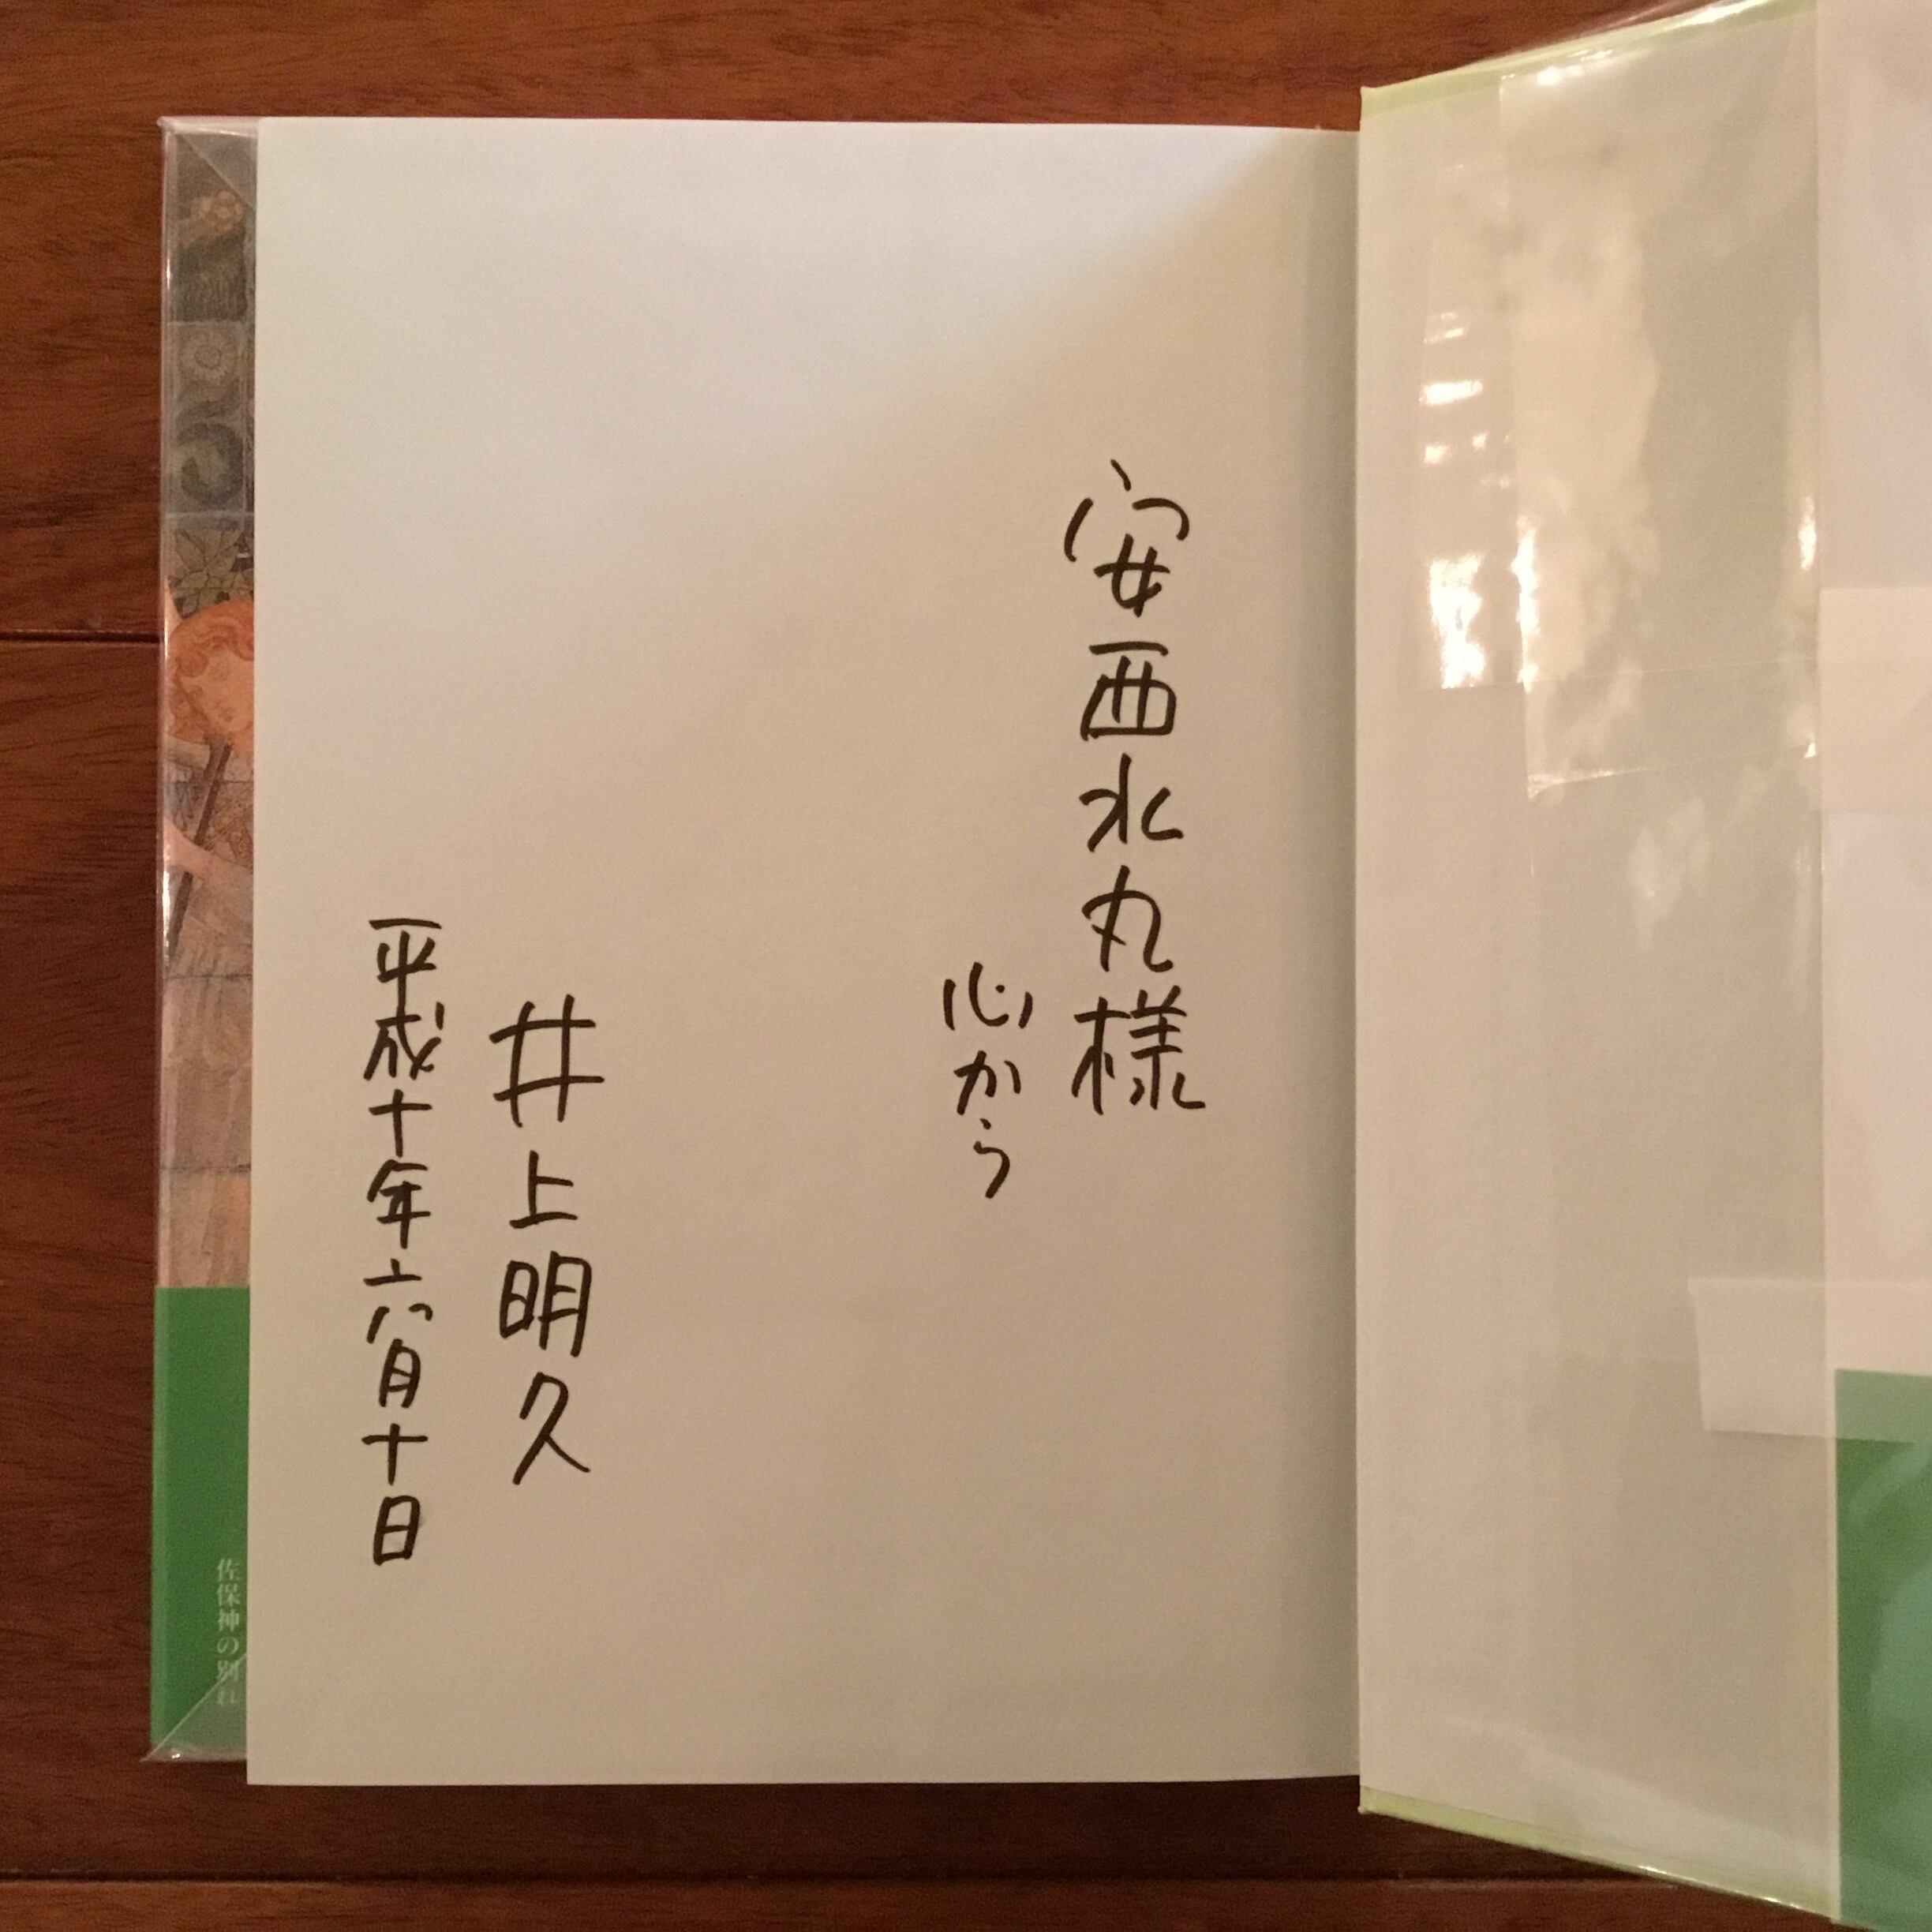 安西水丸様
心から
井上明久
平成十年六月十日
佐保神の別れ